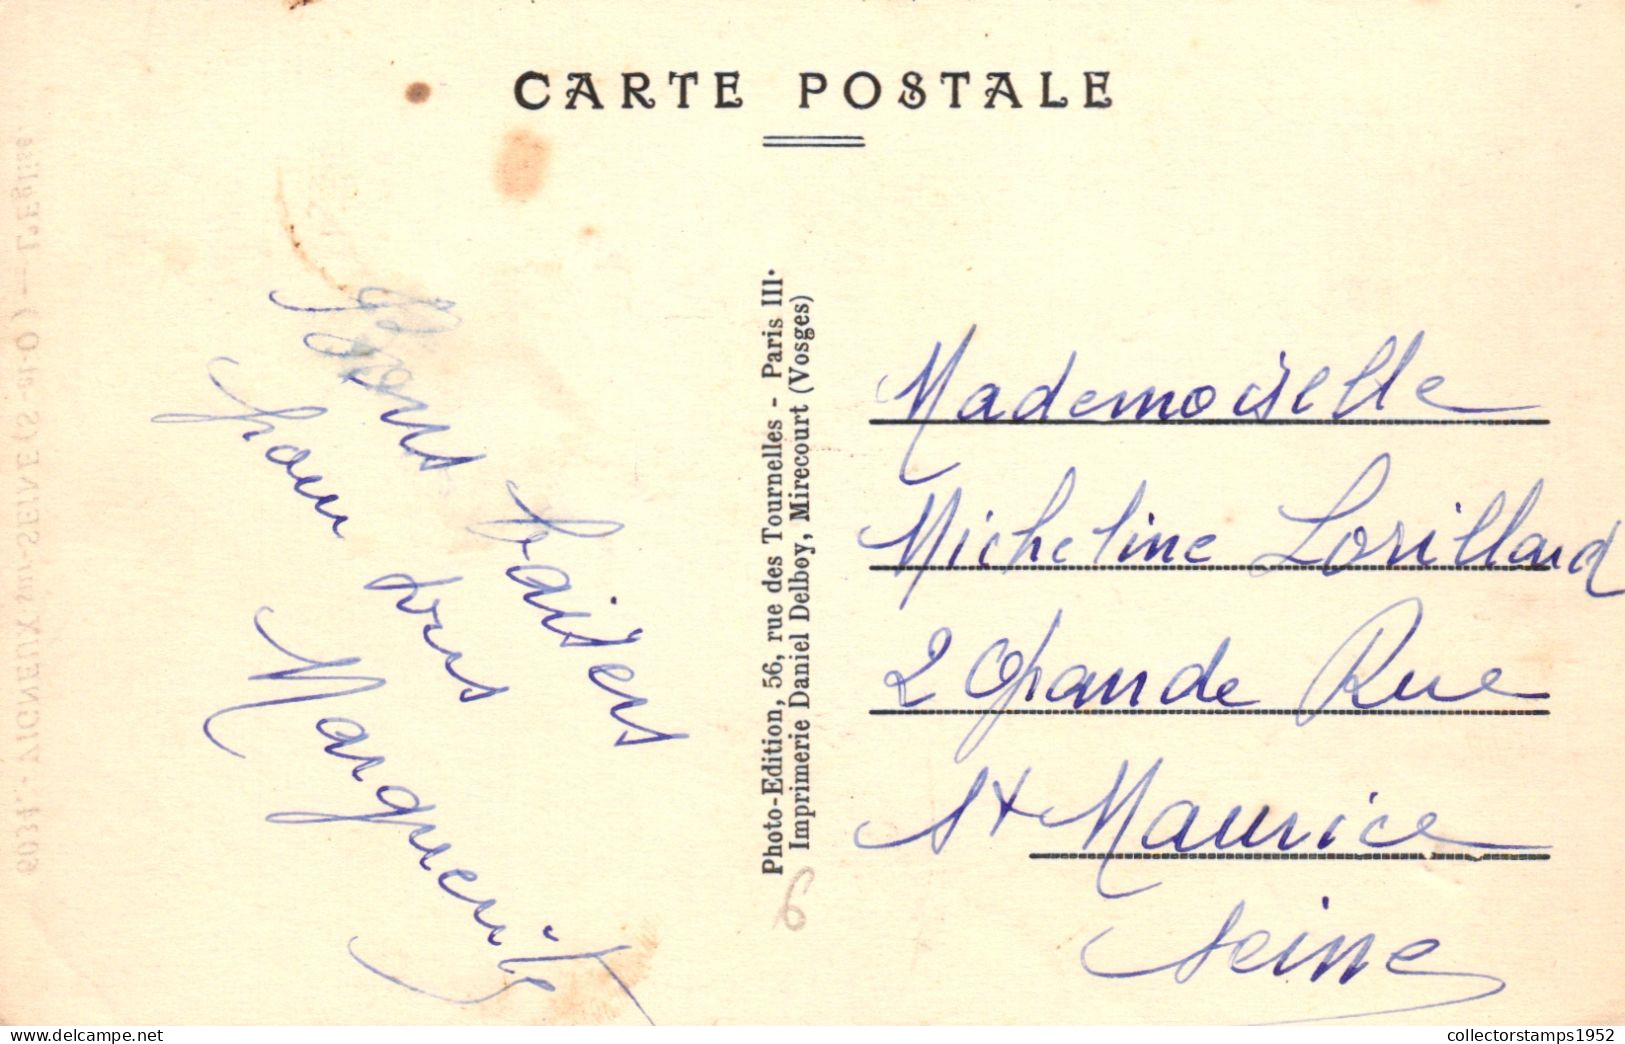 CARTE POSTALE
Bons baisers
pour tous
Marguerite
Photo-Edition, 56, rue des Tournelles - Paris III·
Imprimerie Daniel Delboy, Mirecourt (Vosges)
Mademoiselle
Micheline Lorillard
2 Grande Rue
St Maurice
Seine
6
6034. - VIGNEUX-sur-SEINE (S.-et-O.) — L'Eglise.
delcampe.net
collectorstamps1952